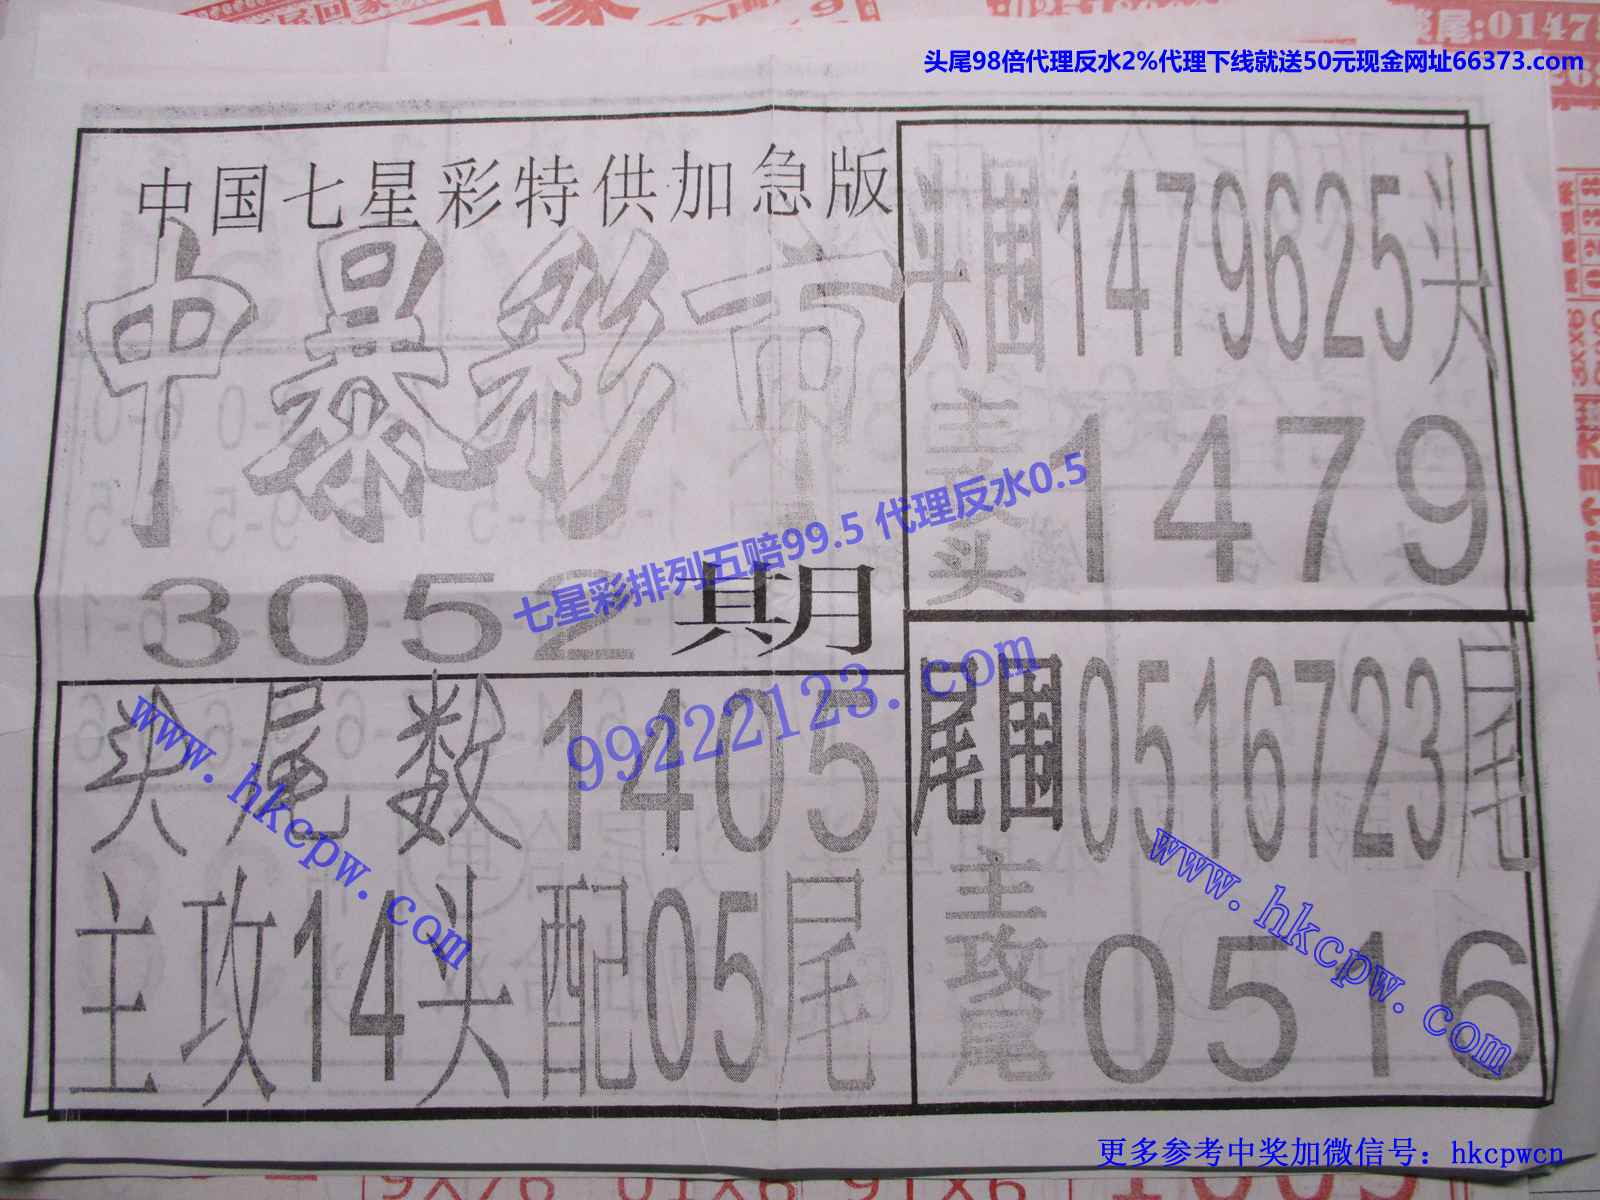 头尾98倍代理反水2%代理下线就送50元现金网址66373.com
中国七星彩特供加急版
中暴彩市
3052期
七星彩排列五赔99.5 代理反水0.5
99222123.com
头尾数1405
主攻14头配05尾
www.hkcpw.com
头围1479625头
主攻头1479
尾围0516723尾
主攻尾0516
www.hkcpw.com
更多参考中奖加微信号：hkcpwcn
9X76 01X6 91X6